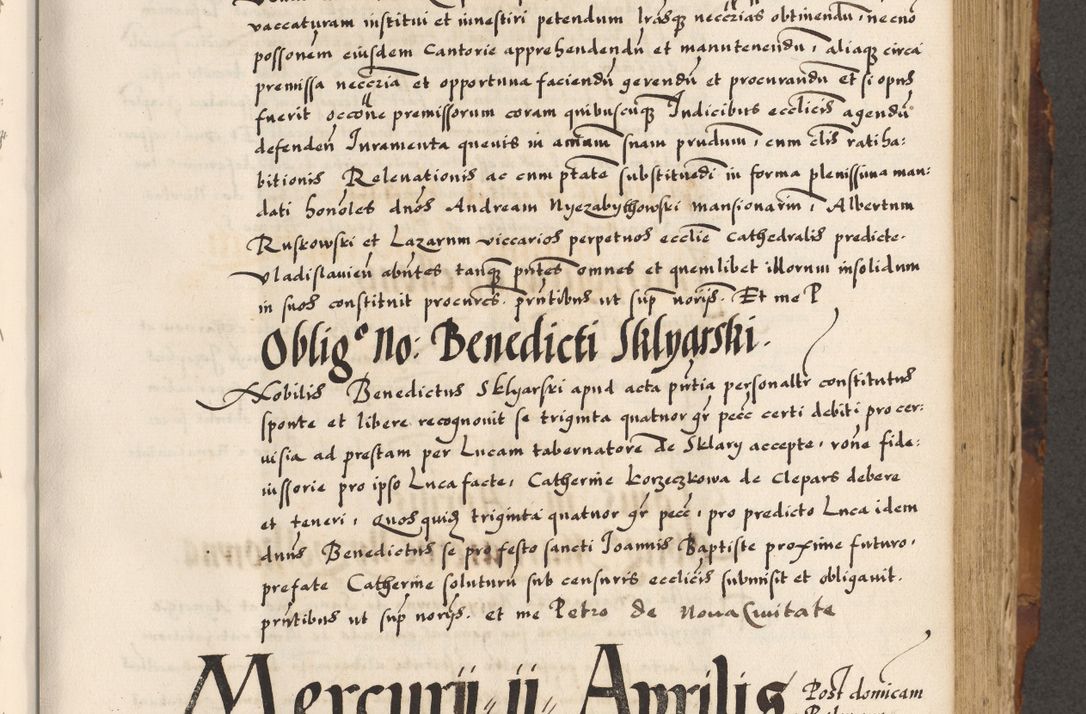 vaccaturam institui et investiri petendum lrasqz neccrias obtinendu, necno
possonem eiusdem Cantorie apprehendendu et manutenendu, aliaqz circa
premissa neccria et opportuna faciendu gerendu et procurandu Et si opus
fuerit occone premissorum coram quibuscuqz Iudicibus ecclicis agendu
defenden Iuramenta quevis in animam suam prudum, cum clis ratiha:
bitionis Relevationis ac cum ptate substituedi in forma plenissima man:
dati honoles dnos Andream Nyezabythowski mansionarin, Albertum
Ruskowski et Lazarum viccarios perpetuos ecclie Cathedralis predicte.
Vladislavien abntes tanqz pntes omnes et quemlibet illorum insolidum
in suos constituit procures. pntibus ut sup noris. Et me P
Oblig° No: Benedicti Sklyarski.
Nobilis Benedictus Sklyarski apud acta pntia personaltr constitutus
sponte et libere recognovit se triginta quatuor gr pecc certi debiti pro cer:
visia ad prestam per Lucam tabernatore de Sklary accepte, rone fide:
iussorie pro ipso Luca facte, Catherine Korzeczkowa de Clepars debere
et teneri, Quos quidz triginta quatuor gr pecc, pro predicto Luca idem
dnus Benedictus se pro festo sancti Ioannis Baptiste proxime futuro,
prefate Catherine soluturu sub censuris ecclicis submisit et obligavit.
pntibus ut sup noris. et me Petro de Nova Civitate
Mercurij ij Aprilis Post domicam